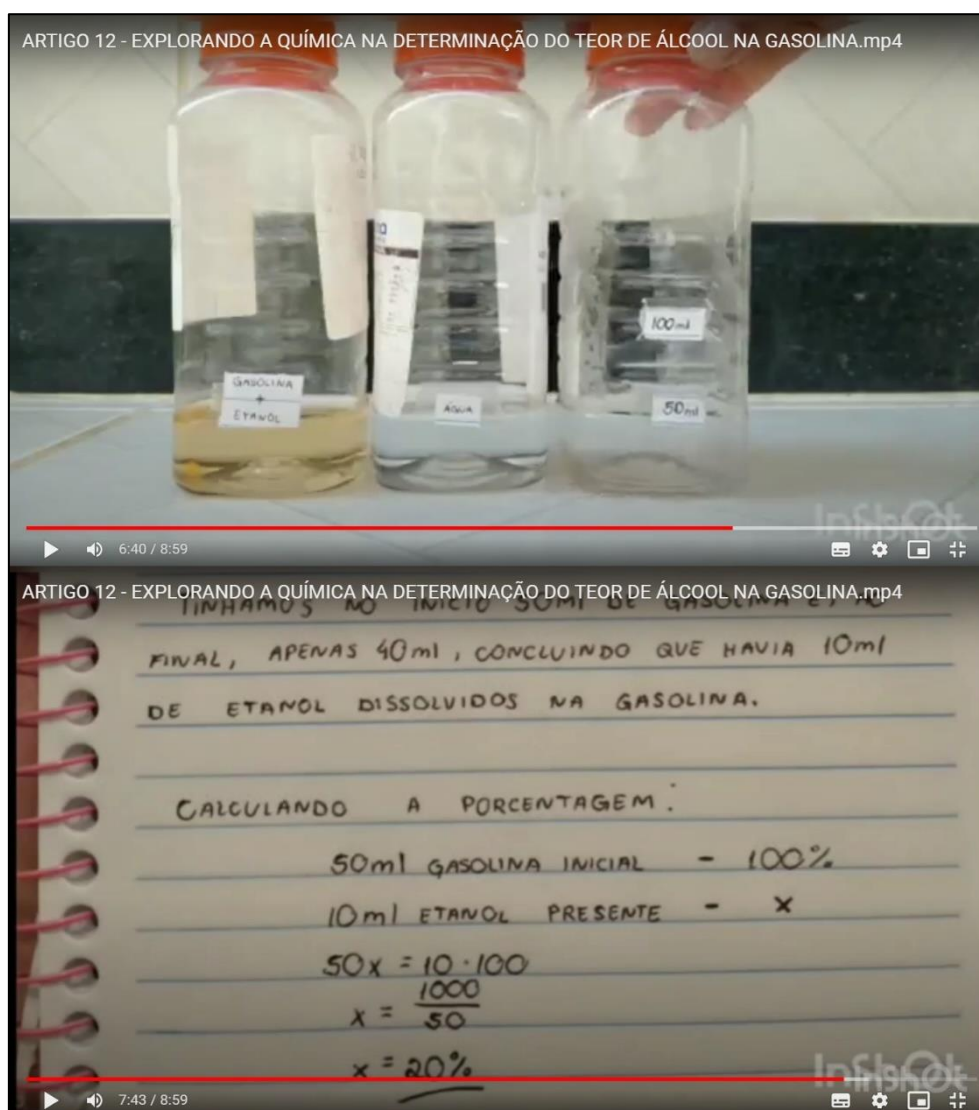 ARTIGO 12 - EXPLORANDO A QUÍMICA NA DETERMINAÇÃO DO TEOR DE ÁLCOOL NA GASOLINA.mp4
GASOLINA
+
ETANOL
ÁGUA
100ml
50ml
InShot
6:40 / 8:59
ARTIGO 12 - EXPLORANDO A QUÍMICA NA DETERMINAÇÃO DO TEOR DE ÁLCOOL NA GASOLINA.mp4
TINHAMOS NO INICIO 50ml DE GASOLINA E, AO
FINAL, APENAS 40ml, CONCLUINDO QUE HAVIA 10ml
DE ETANOL DISSOLVIDOS NA GASOLINA.
CALCULANDO A PORCENTAGEM:
50ml GASOLINA INICIAL - 100%
10ml ETANOL PRESENTE - X
50x = 10 · 100
x = 1000
50
x = 20%
InShot
7:43 / 8:59